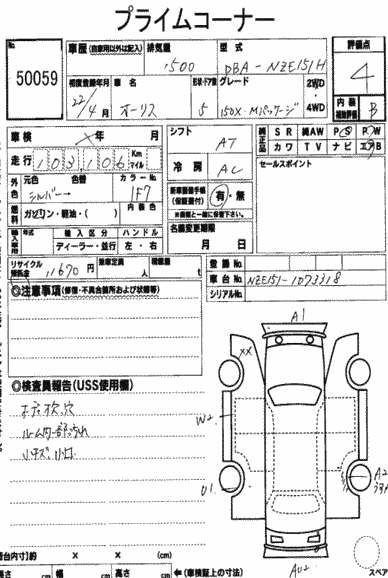 プライムコーナー
No.
50059
車歴 (自家用以外は記入)
排気量
1500
型式
DBA-NZE151H
評価点
4
初度登録年月
22/4月
車名
オーリス
形状・ドア数
5
グレード
150X-Mパッケージ
2WD
4WD
内装
補助評価
B
車検
年 月
走行
103,106
Km
マイル
シフト
AT
冷房
AC
純正品
SR 純AW PS PW
カワ TV ナビ エアB
セールスポイント
外色
元色
シルバー
色替
カラーNo.
1F7
内装色
燃料
ガソリン・軽油・( )
新車整備手帳
(保証書付)
有・無
※車検証と一緒に保管下さい。
輸入車用
年式
輸入区分
ディーラー・並行
ハンドル
左・右
名義変更期限
月 日
リサイクル
預託金
11670円
乗車定員
人
積載量
t
登録No.
車台No.
NZE151-1073318
シリアルNo.
◎注意事項(修復・不具合箇所および状態等)
◎検査員報告(USS使用欄)
ボデ吹穴
ルーム内一部汚れ
小キズ 小凹
A1
XX
W2
U1
A2
AU2
スペア
荷台内寸)約 × × (cm)
長さ cm 幅 cm 高さ cm
←(車検証上の寸法)